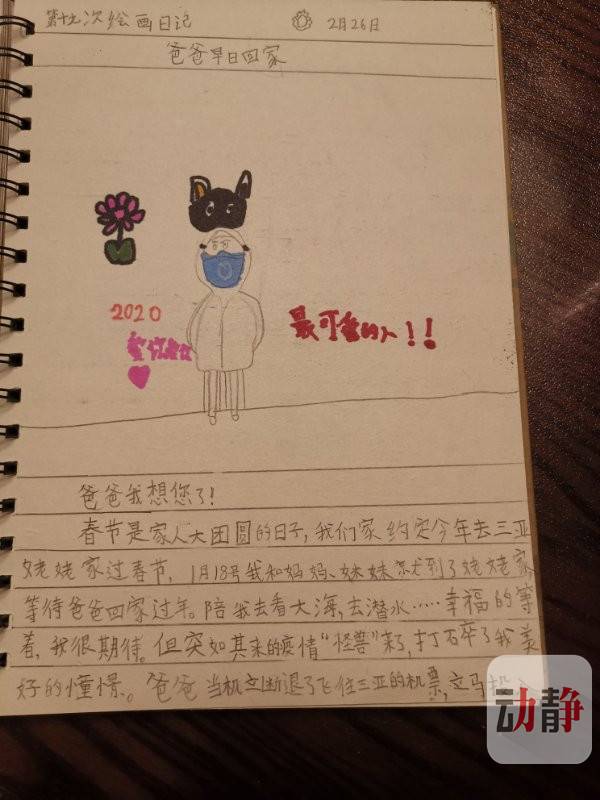 第十九次绘画日记 2月26日
爸爸早日回家
2020
最可爱的人!!
爸爸我想您了!
春节是家人大团圆的日子,我们家约定今年去三亚
姥姥家过春节,1月18号我和妈妈、妹妹就到了姥姥家,
等待爸爸回家过年。陪我去看大海,去潜水……幸福的等
着,我很期待。但突如其来的疫情“怪兽”来了,打碎了我美
好的憧憬。爸爸当机立断退了飞往三亚的机票,立马投入
动静